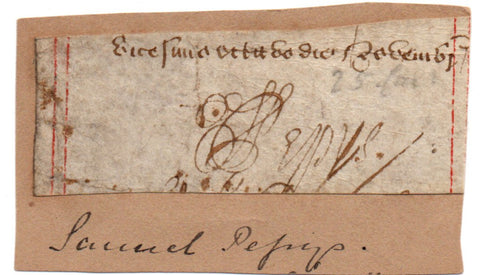 vicesimo octavo die Novembr
S Pepys.
Samuel Pepys.